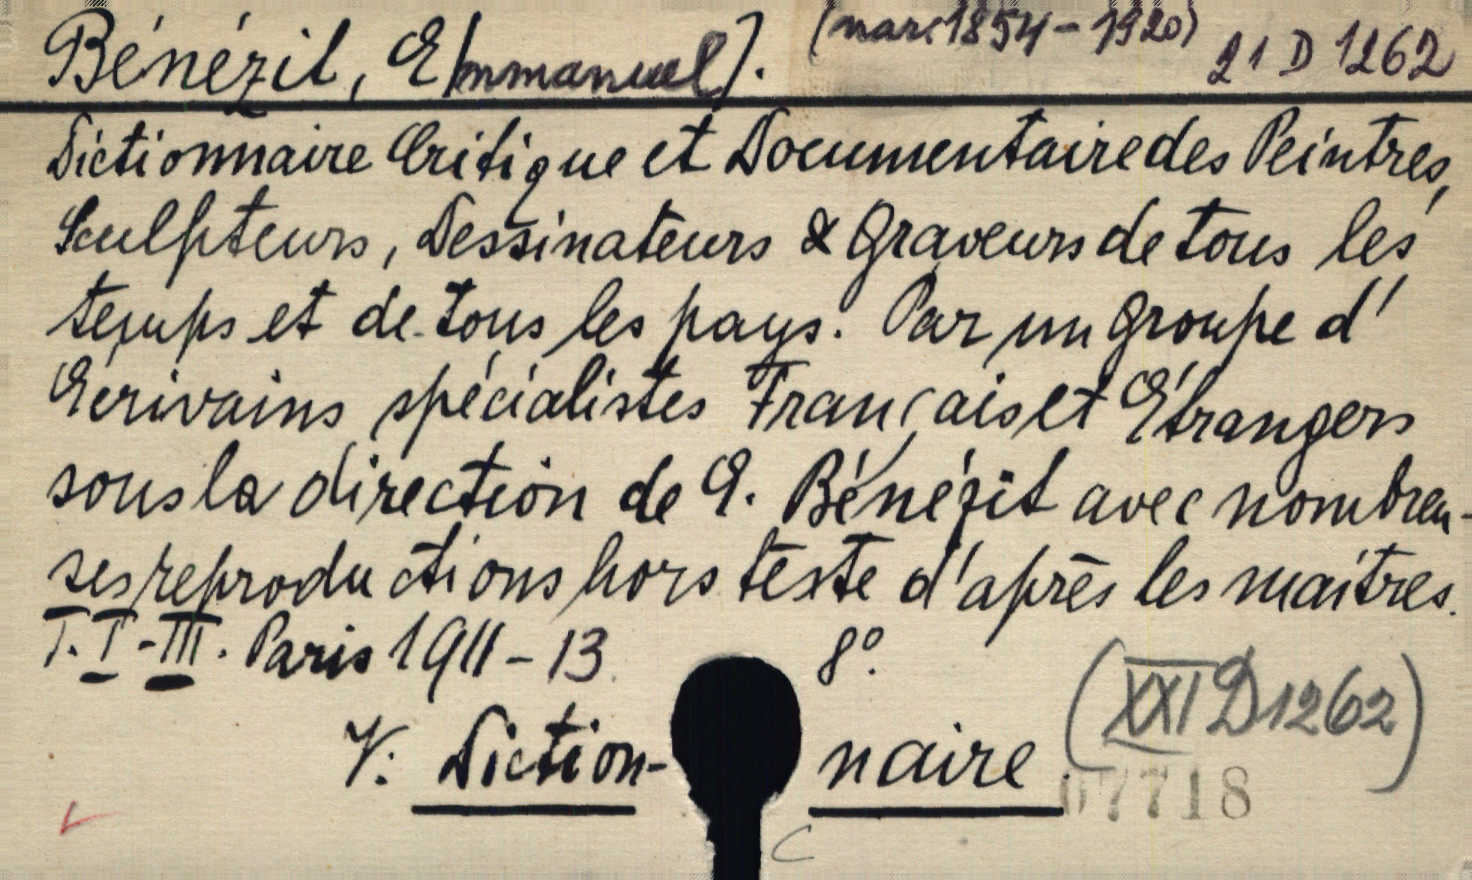 Bénézit, E[mmanuel]. (narc 1854-1920) 21 D 1262
Dictionnaire Critique et Documentaire des Peintres,
Sculpteurs, Dessinateurs & Graveurs de tous les
temps et de tous les pays. Par un Groupe d'
Ecrivains spécialistes Français et Étrangers
sous la direction de E. Bénézit avec nombreu-
ses reproductions hors texte d'après les maîtres.
T. I-III. Paris 1911-13. 8°.
(XXI D 1262)
V: Diction-naire
07718